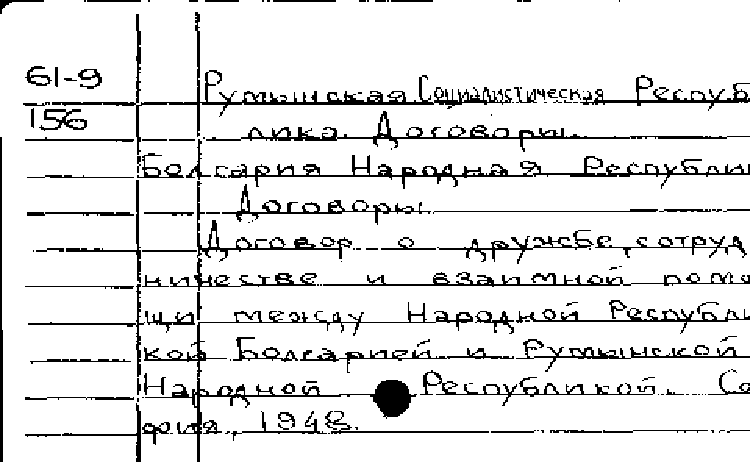 61-9
Румынская Социалистическая Респуб
156
лика. Договоры.
Болгария Народная Республи
Договоры.
Договор о дружбе, сотруд
ничестве и взаимной помо
щи между Народной Республи
кой Болгарией и Румынской
Народной Республикой. Со
фия, 1948.